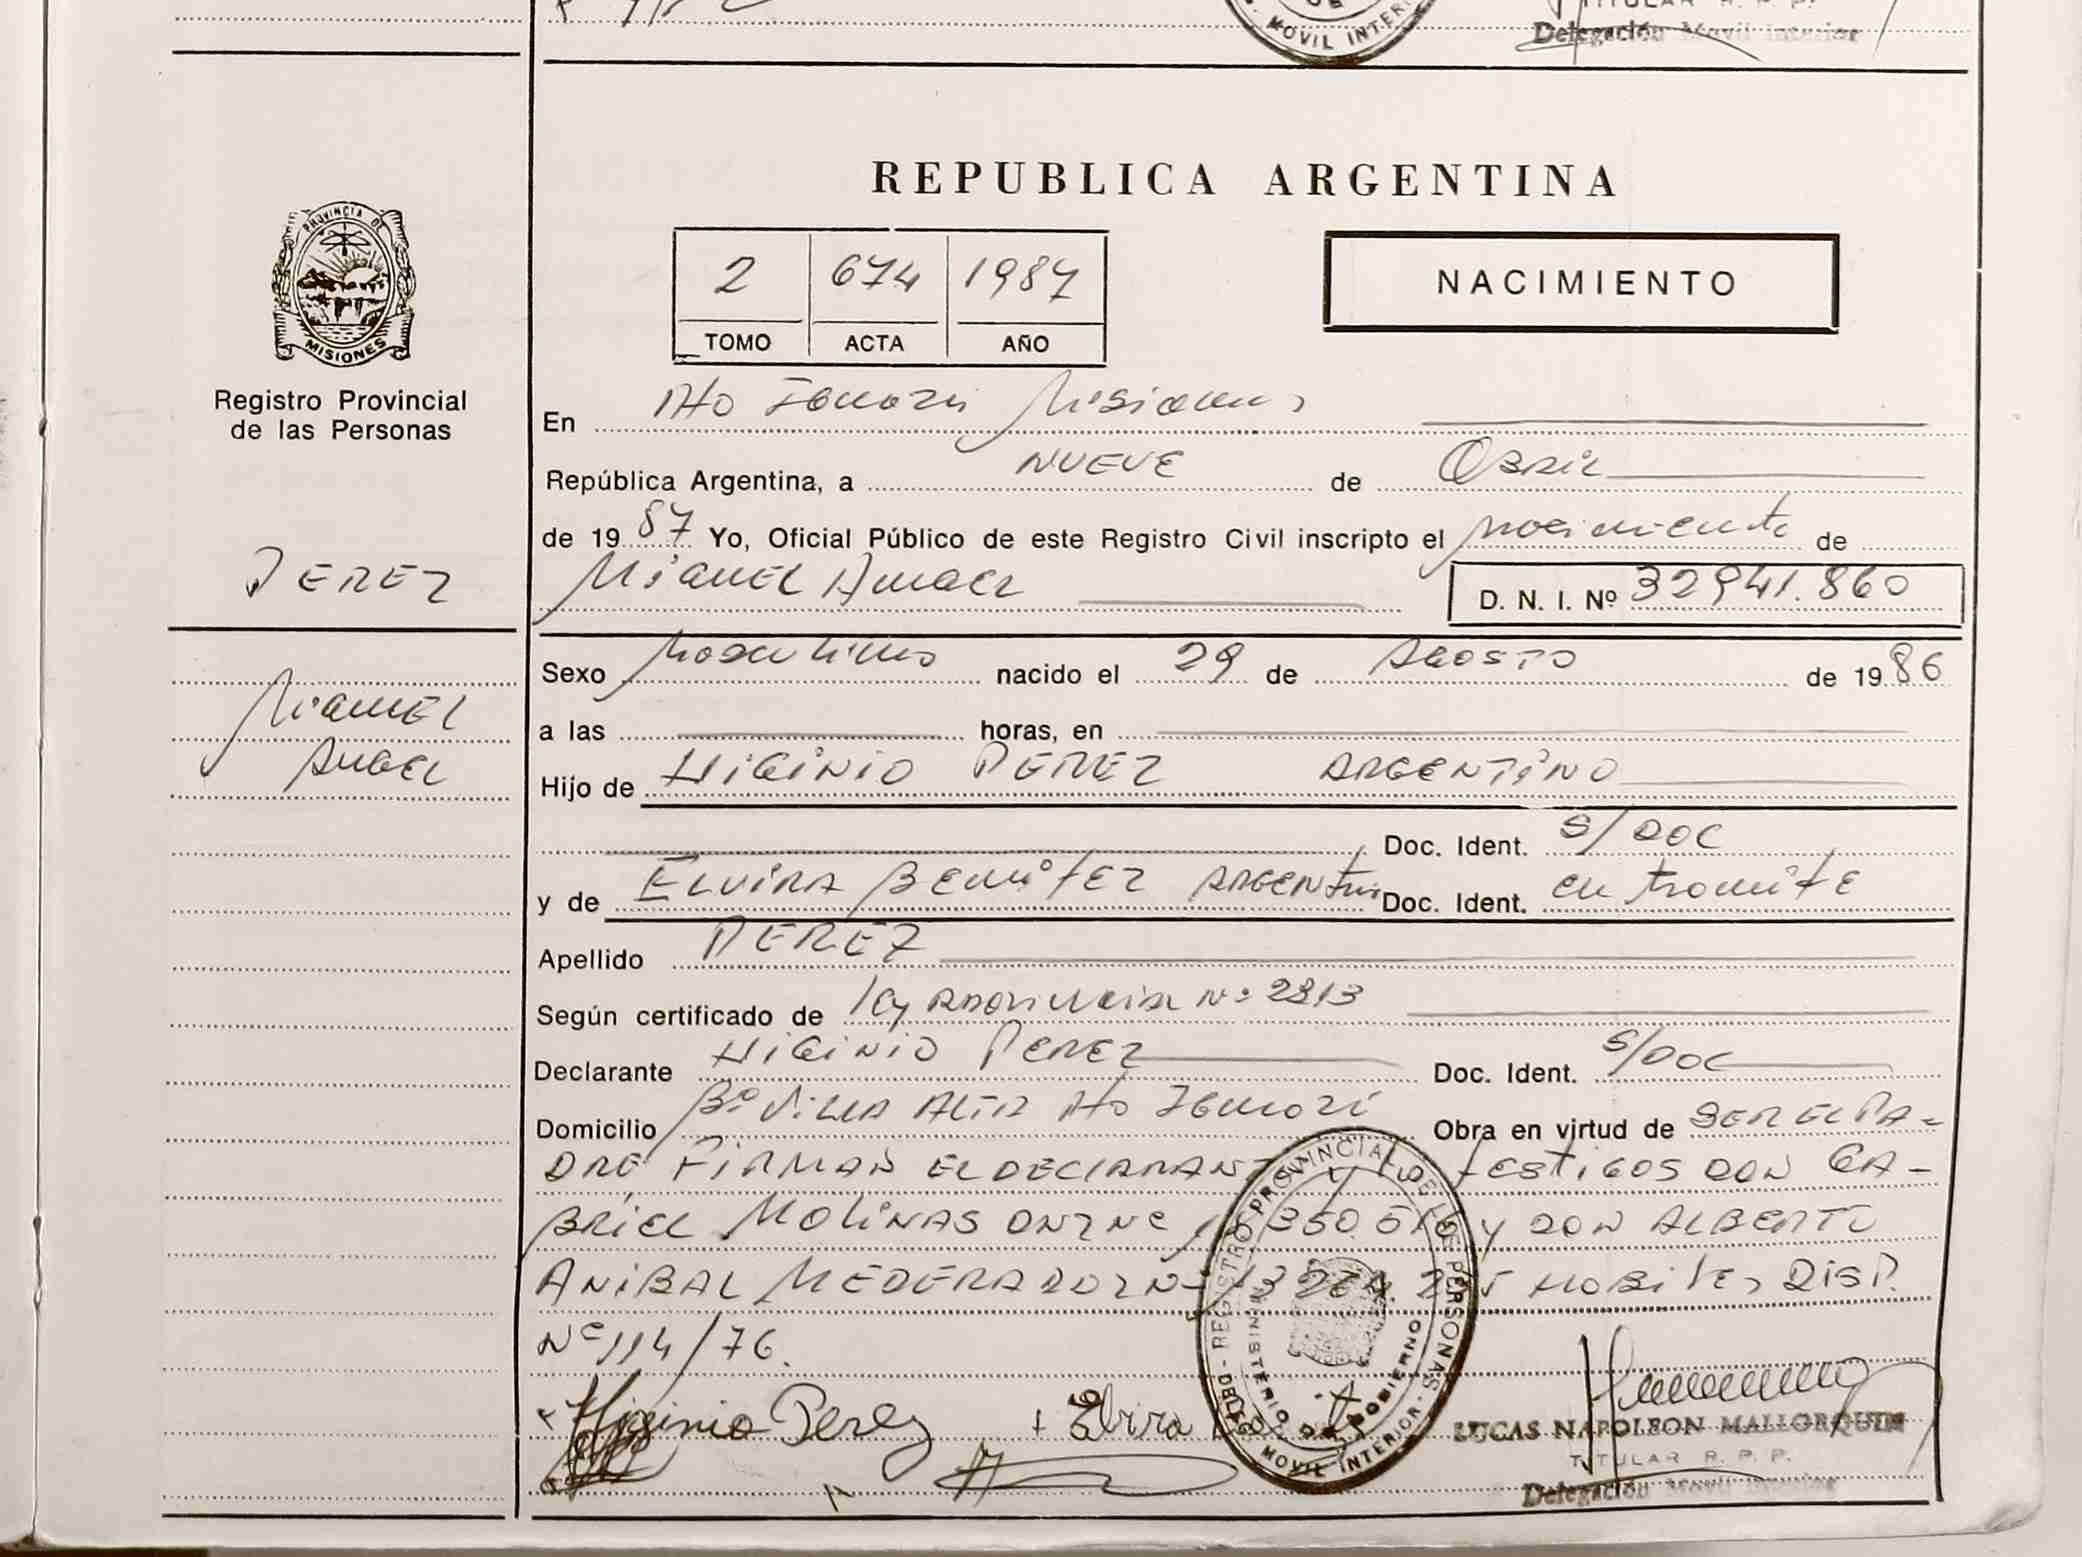 MOVIL INTERI
TITULAR R. P. P.
Delegación Movil Interior
REPUBLICA ARGENTINA
PROVINCIA DE
MISIONES
Registro Provincial
de las Personas
2 674 1987
TOMO ACTA AÑO
NACIMIENTO
En Misiones
República Argentina, a NUEVE de Abril
de 1987 Yo, Oficial Público de este Registro Civil inscripto el nacimiento de
PEREZ
MIGUEL ANGEL
D. N. I. Nº 32941.860
Sexo Masculino nacido el 29 de AGOSTO de 1986
MIGUEL
ANGEL
a las horas, en
Hijo de HIGINIO PEREZ ARGENTINO
Doc. Ident. S/DOC
y de ELVIRA BENITEZ ARGENTINA Doc. Ident. en tramite
Apellido PEREZ
Según certificado de Ley PROVINCIAL Nº 2813
Declarante HIGINIO PEREZ Doc. Ident. S/DOC
Domicilio Bº VILLA ALTA Obra en virtud de SER EL PA-
DRE FIRMAN EL DECLARANTE Y testigos DON GA-
BRIEL MOLINAS y DON ALBERTO
ANIBAL DISP.
Nº 114/76.
REGISTRO PROVINCIAL DE PERSONAS
MINISTERIO DE GOBIERNO
MOVIL INTERIOR
Higinio Perez
Elvira
LUCAS NAPOLEON MALLORQUIN
TITULAR R. P. P.
Delegación Movil Interior